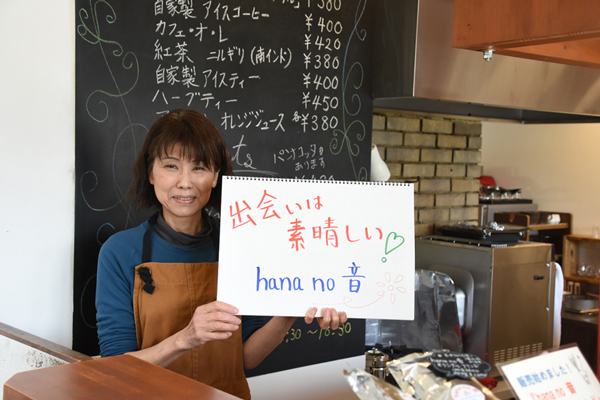 ¥380
自家製 アイスコーヒー
¥400
カフェ・オ・レ
¥420
紅茶 ニルギリ(南インド)
¥380
自家製 アイスティー
¥400
ハーブティー
¥450
オレンジジュース 各¥380
パンナコッタも
あります
出会いは
素晴しい
hana no 音
販売始めました!
「hana no 音